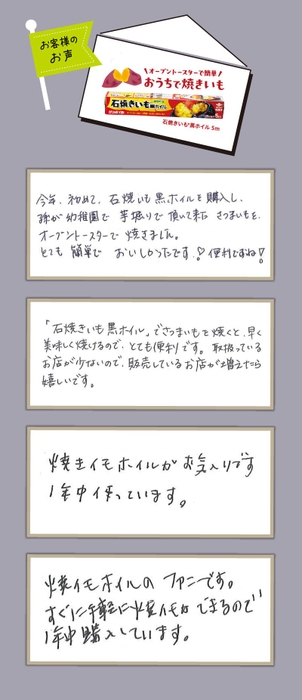 お客様の
お声
オーブントースターで簡単
おうちで焼きいも
石焼きいも黒ホイル
石焼きいも黒ホイル 5m
今年、初めて、石焼いも黒ホイルを購入し、
孫が幼稚園で芋掘りで頂いて来たさつまいもを、
オーブントースターで焼きました。
とても簡単でおいしかったです♡!便利ですね!
「石焼きいも黒ホイル」でさつまいもを焼くと、早く
美味しく焼けるので、とても便利です。取扱っている
お店が少ないので、販売しているお店が増えたら
嬉しいです。
焼きイモホイルがお気入りです
1年中使っています。
焼イモホイルのファンです。
すぐに手軽に焼イモができるので
1年中購入しています。